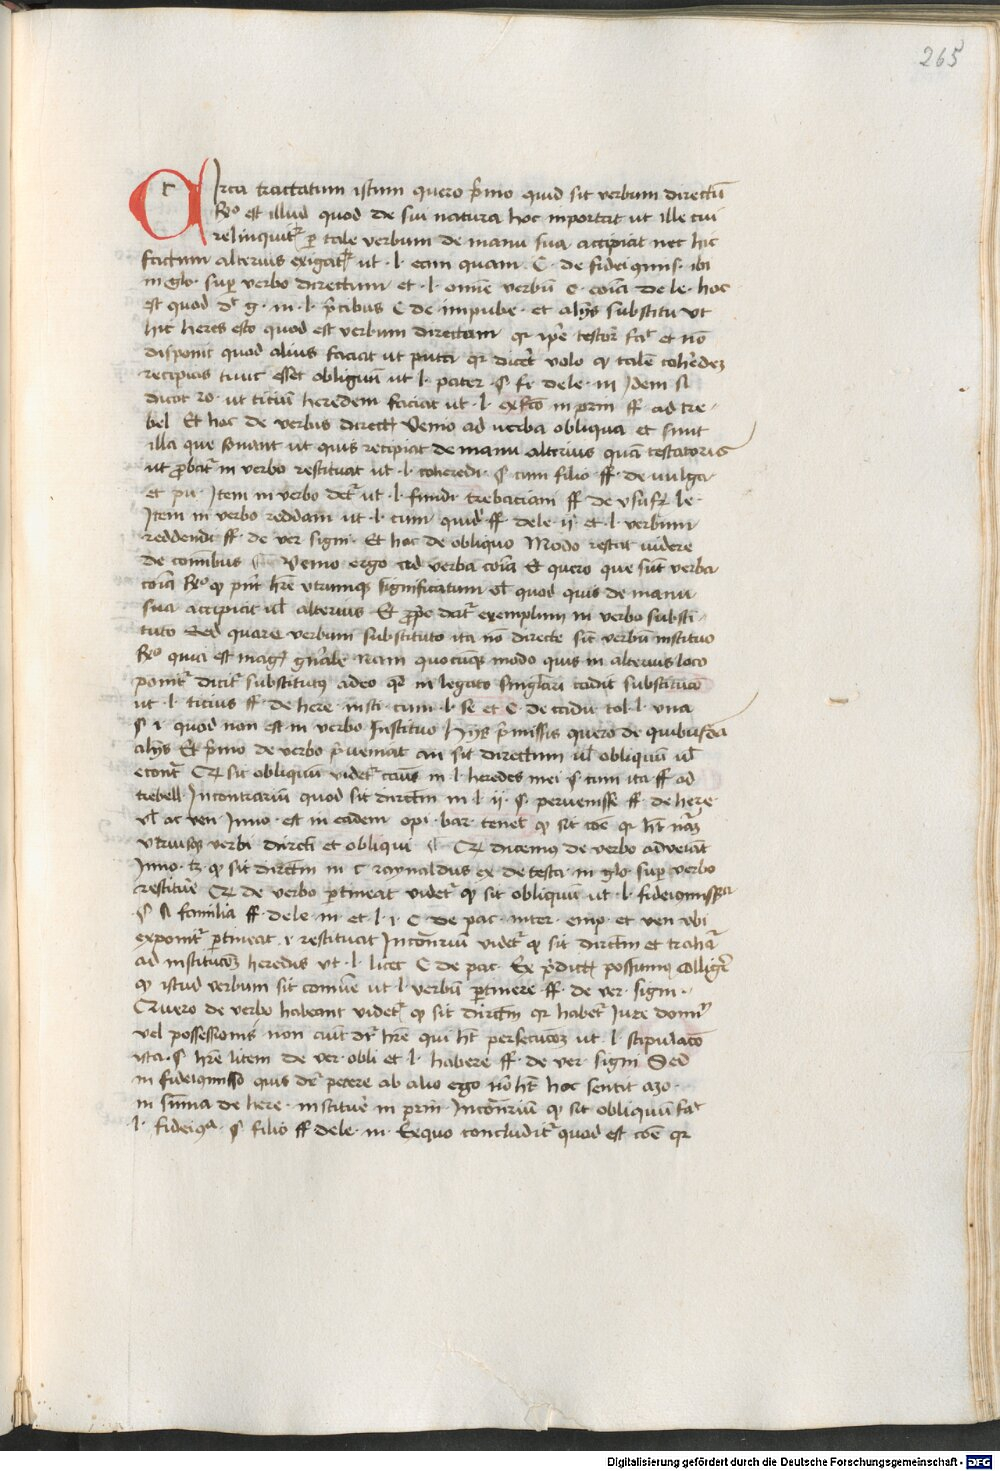 265
Circa tractatum istum quero p̄mo quid sit verbum directū
R͞o est illud quod de sui natura hoc inportat ut ille cui
relinquit͛ p tale verbum de manu sua accipiat nec hic
factum alterius exigat͛ ut · l · eam quam · C · de fideiq̄mis · ibi
in glo · sup verbo directum et · l · om̄e verbū C · cōia de le · hoc
est quod dr̄ g · in · l · p̄cibus C de impube · et alijs substitu ut
hic heres esto quod est verbum directum qr ip̄e testor̄ fa͛ et nō
disponit quod alius faciat ut putti qr dicēt volo qp talē cohēdez
recipias tunc esset obliquū ut l · pater · § fr̄ de le · iij Idem si
dicat ro · ut titiū heredem faciat ut · l · ex fcō in prin ff ad tre·
bel Et hoc de verbis direct͛ Venio ad verba obliqua et sunt
illa que sonant ut quis recipiat de manu alterius quā testatoris
ut p̄bat͛ in verbo restituat ut · l · coheredi · § cum filio ff · de vulga·
et pu · Item in verbo det͛ ut · l · fundi trebaciani ff de usufr̄ le ·
Item in verbo reddam ut · l · cum quid͛ ff de le · ij · et · l · verbum
reddendi ff · de ver sign̄ · Et hoc de obliquo Modo restat videre
de cōmibus Venio ergo ad verba cōia Et quero que sūt verba
cōia R͞o qp pn̄t hr̄e utrumqz significatum vl̄ quod quis de manu
sua accipiat vl̄ alterius Et p̄pe dat͛ exemplum in verbo substi·
tuto Sed quare verbum substituto ita nō directe sit verbū instituo
R͞o quia est mag͛ gn̄ale nam quocūqz modo quis in alterius loco
ponit͛ dicit͛ substitutus adeo qr in legato singlari cadit substitucō
ut · l · titius ff · de here · insti · cum · l · se et C · de cadu tol · l · una
§ i · quod non est in verbo Instituo hijs p̄missis quero de quibusdā
alijs Et p̄mo de verbo p̄veniat an sit directum vl̄ obliquū vl̄
econt̄ Qr sit obliquū videt͛ casus in · l · heredes mei § cum ita ff ad
trebell · Incontrariū quod sit dirctm̄ in l · ij · § pervenisse ff · de here ·
vl̄ ac ven Inno · est in eadem opi · bar tenet qp sit cōe qr hēt nāz
utriusqz verbi dircti et obliqui Qr dicemus de verbo adveiat
Inno · tz qp sit dirctm̄ in c raynaldus ex de testa · in glo · sup verbo
restituē Qr de verbo p̄tineat videt͛ qp sit obliquū ut · l · fideiq̄missa
§ si familia ff · de le · iij et · l · i · C · de pac · inter · emp · et ven ubi
exponit͛ p̄tineat · i · restituat Incōnriū videt͛ qp sit dirctm̄ et trahit͛
ad institucōz heredis ut · l · licet C de pac · Ex p̄dict͛ possumus colligē
qp istud verbum sit comūe ut l · verbū p̄tinere ff · de ver · sign̄ ·
Qr vero de verbo habeant videt͛ qp sit dirctm̄ qr habet͛ Iure domī
vel possessionis non aut̄ dr̄ hr̄e qui hēt persecucōz ut · l · stipulacō
ista · § hr̄e litem de ver · obli et l · habere ff · de ver · sign̄ Sed
in fideiq̄misso quis dr̄ petere ab alio ergo nō hēt hoc sentit azo ·
in sūma de here · instituē in prin̄ · Incōnriū qp sit obliquū fac͛
l · fideiq̄ · § filio ff de le · iij · Ex quo concludit͛ quod est cōe qr
Digitalisierung gefördert durch die Deutsche Forschungsgemeinschaft - DFG